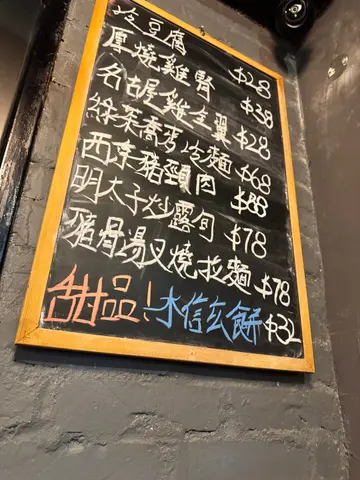 冷豆腐 $28
原燒雞腎 $38
名古屋雞全翼 $28
綠茶喬麥冷麵 $68
西京豬頸肉 $88
明太子炒露旬 $78
豬骨湯叉燒拉麵 $78
甜品!水信玄餅 $32